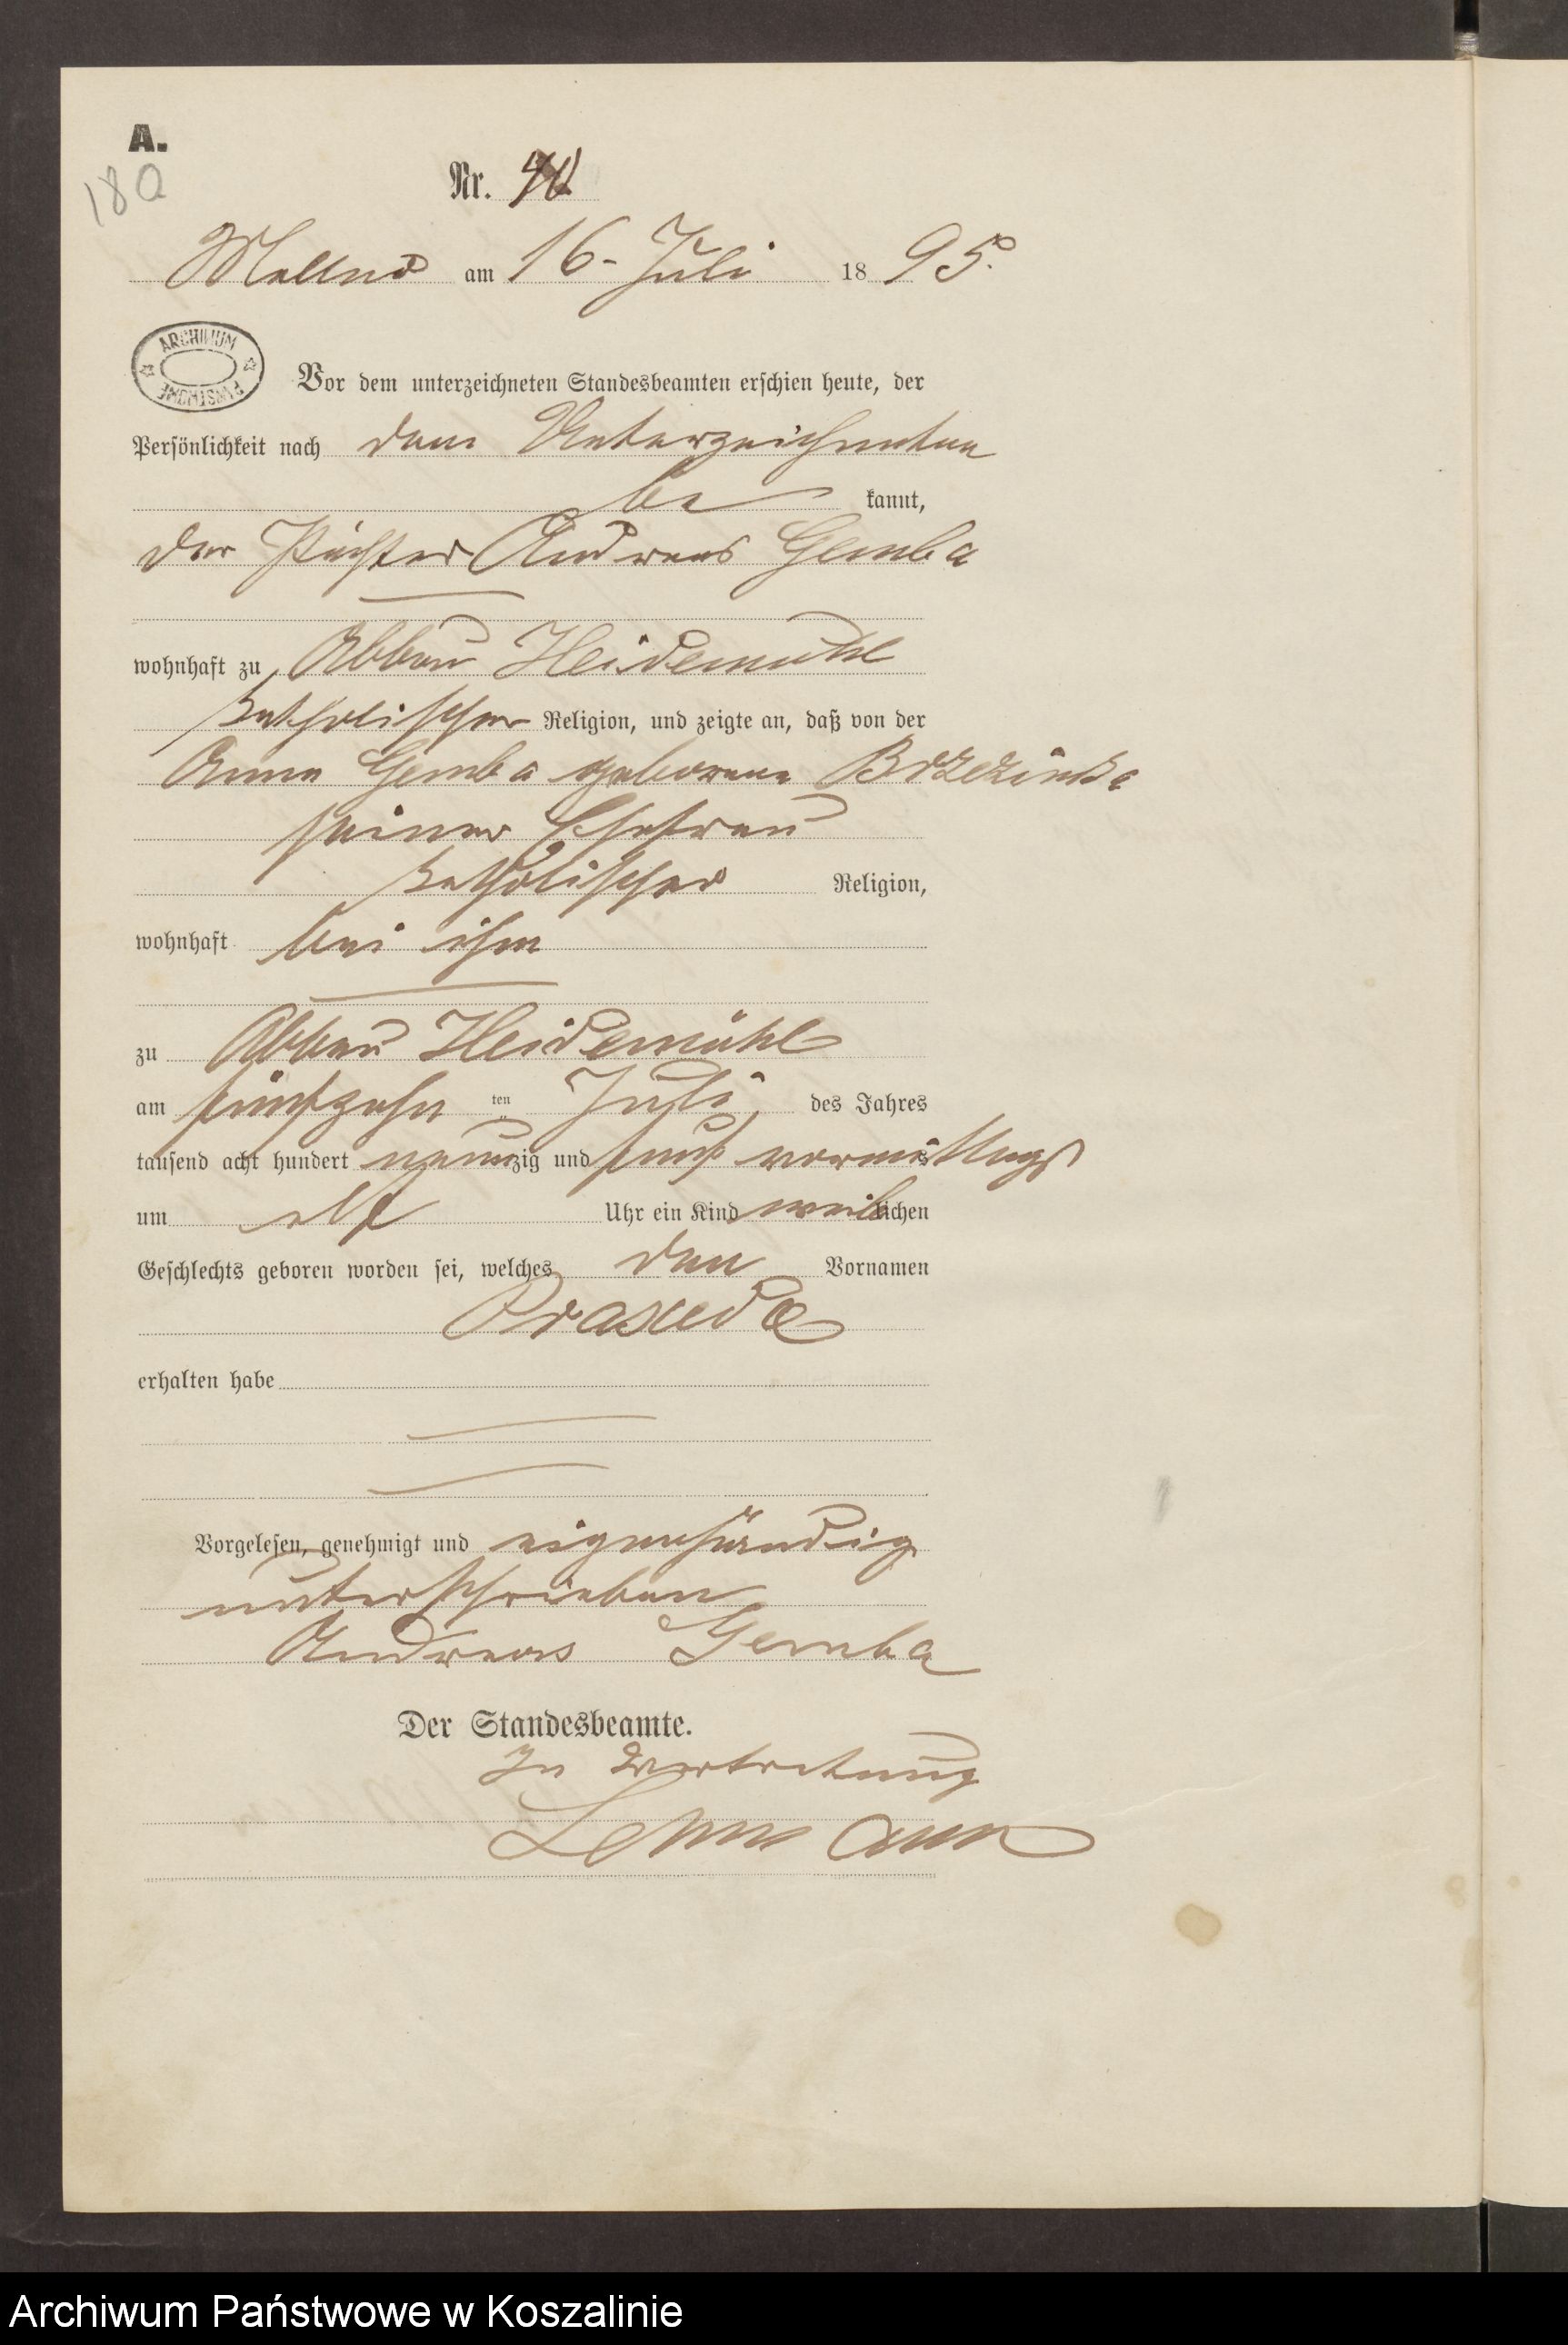 A.
18a
Nr.
am 16. Juli 1895.
ARCHIWUM PAŃSTWOWE
Vor dem unterzeichneten Standesbeamten erschien heute, der
Persönlichkeit nach dem Unterzeichneten
be kannt,
der Pächter Andreas Gemba
wohnhaft zu Abbau Heidemühl
katholischer Religion, und zeigte an, daß von der
Anna Gemba geborene Brzezinska
seiner Ehefrau
katholischer Religion,
wohnhaft bei ihm
zu Abbau Heidemühl
am fünfzehn ten Juli des Jahres
tausend acht hundert neunzig und fünf vormittags
um elf Uhr ein Kind weiblichen
Geschlechts geboren worden sei, welches den Vornamen
Praxeda
erhalten habe
Vorgelesen, genehmigt und eigenhändig
unterschrieben
Andreas Gemba
Der Standesbeamte.
In Vertretung
Archiwum Państwowe w Koszalinie